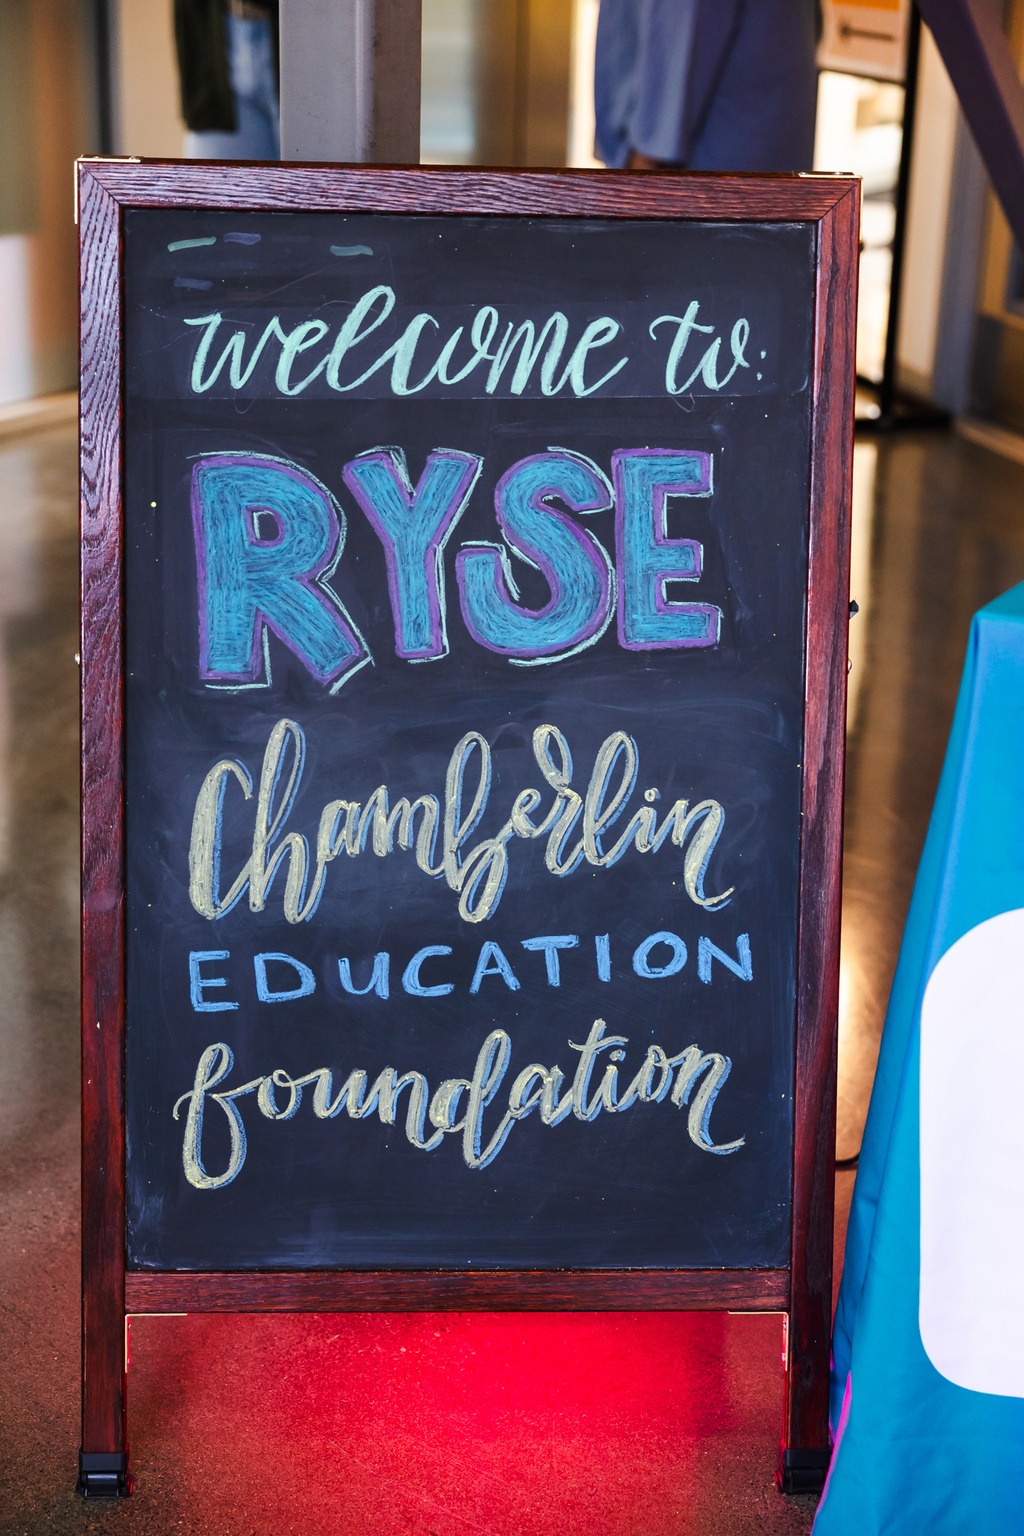 welcome to:
RYSE
Chamberlin
EDUCATION
foundation